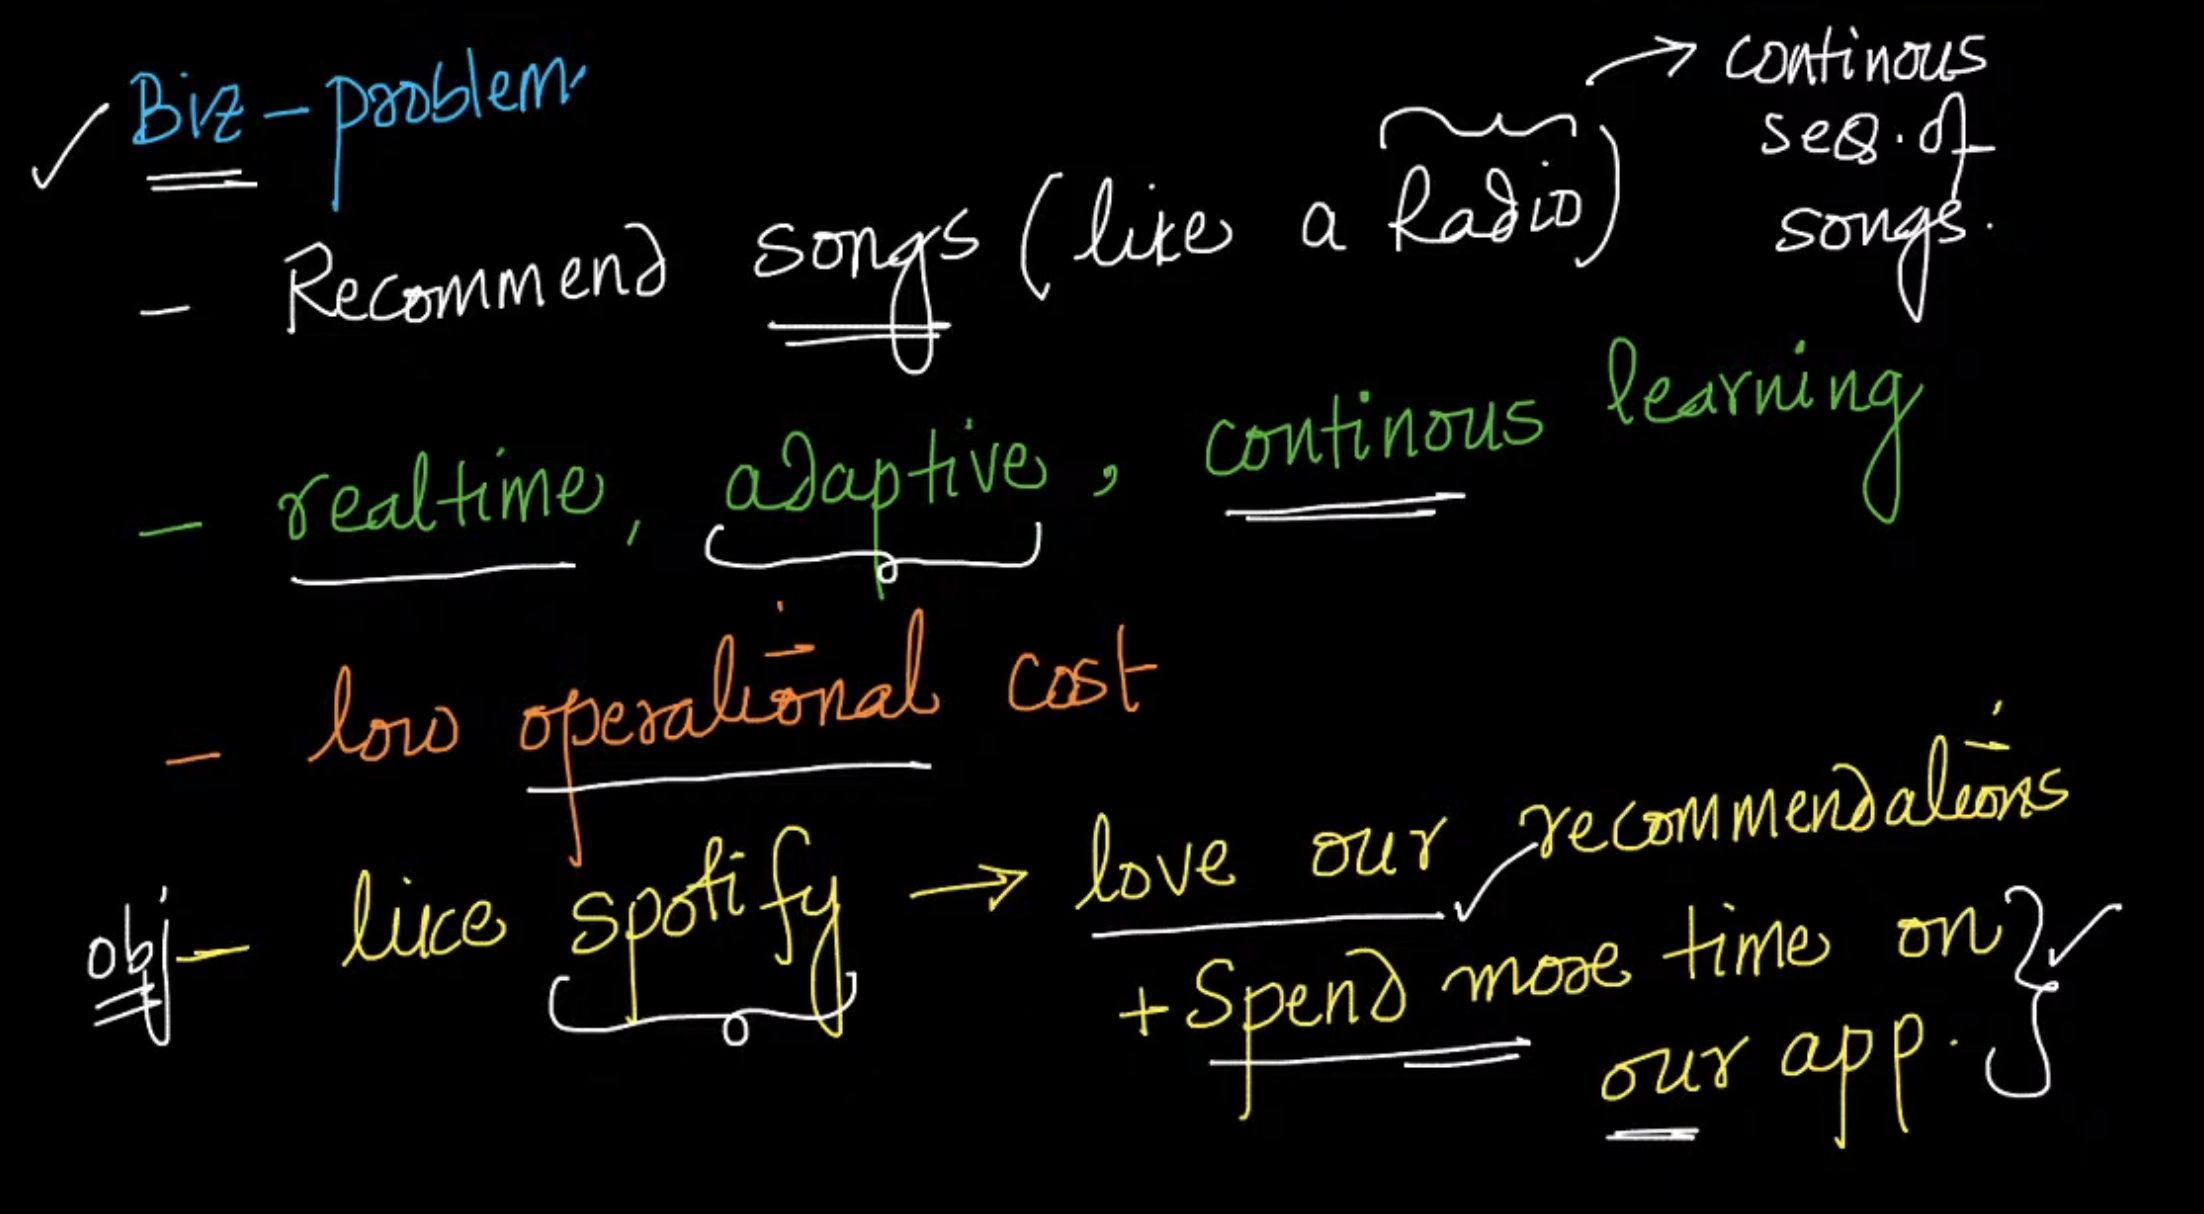 Biz-problem
- Recommend songs (like a Radio) → continous
seq. of
songs.
- realtime, adaptive, continous learning
- low operational cost
obj - like spotify → love our recommendations
+ Spend more time on
our app.